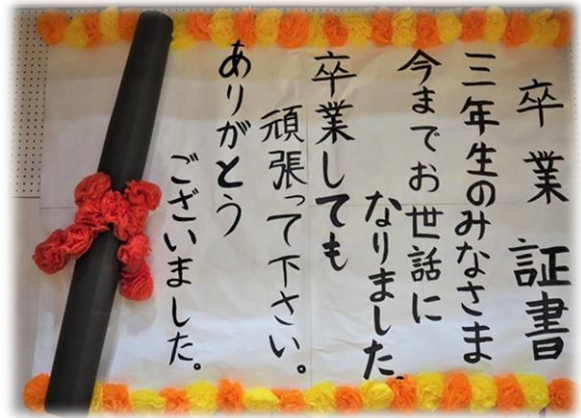 卒業証書
三年生のみなさま
今までお世話に
なりました。
卒業しても
頑張って下さい。
ありがとう
ございました。